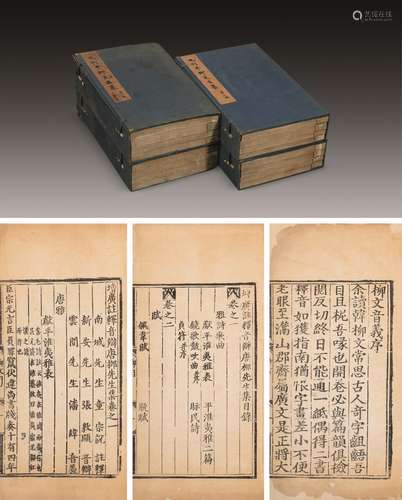 艺狐在线
柳文音義序
余讀韓柳文常思古人奇字齟齬吾
目且吾喉也開卷必與篇韻俱撿
閱反切終日不能通一紙偶得二書
釋音如獲指南猶恨字畫差小不便
老眼至山郡齋屬廣文是正將大
增廣註釋音辯唐柳先生集目錄
卷之一
雅詩歌曲
獻平淮夷雅表 平淮夷雅二篇
鐃歌鼓吹曲并序
貞符并序 眡民詩
卷之二
賦
佩韋賦 瓶賦
增廣註釋音辯唐柳先生集卷之一
南城先生童宗說註釋
新安先生張敦頤音辯
雲間先生潘緯音義
唐雅
獻平淮夷雅表
臣宗元言臣負罪竄伏違尚書牋奏十有四年